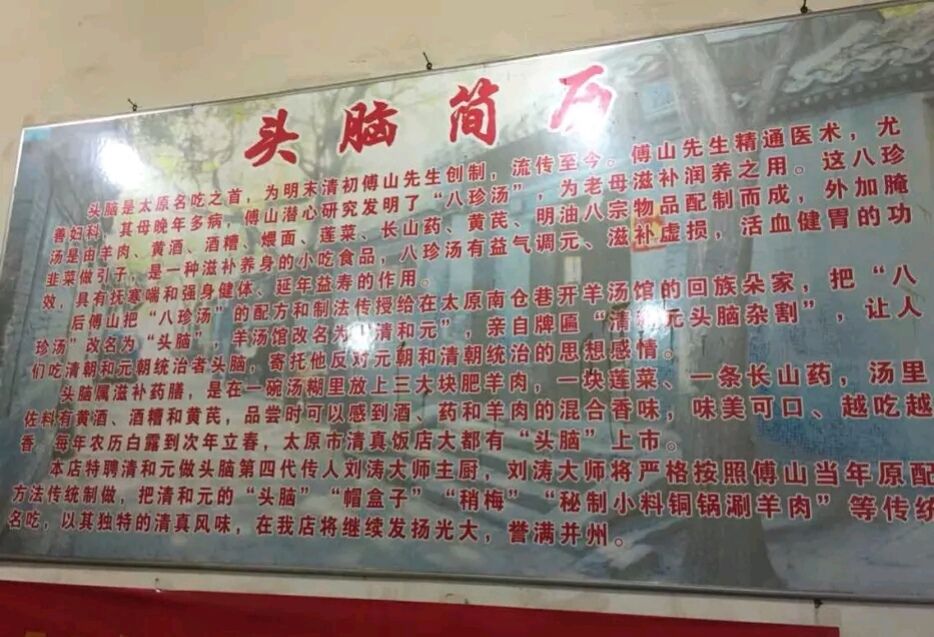 头脑简历
头脑是太原名吃之首，为明末清初傅山先生创制，流传至今。傅山先生精通医术，尤
善妇科，其母晚年多病，傅山潜心研究发明了“八珍汤”，为老母滋补润养之用。这八珍
汤是由羊肉、黄酒、酒糟、煨面、莲菜、长山药、黄芪、明油八宗物品配制而成，外加腌
韭菜做引子，是一种滋补养身的小吃食品，八珍汤有益气调元、滋补虚损，活血健胃的功
效，具有抚寒喘和强身健体、延年益寿的作用。
后傅山把“八珍汤”的配方和制法传授给在太原南仓巷开羊汤馆的回族朵家，把“八
珍汤”改名为“头脑”，羊汤馆改名为“清和元”，亲自牌匾“清和元头脑杂割”，让人
们吃清朝和元朝统治者头脑，寄托他反对元朝和清朝统治的思想感情。
头脑属滋补药膳，是在一碗汤糊里放上三大块肥羊肉，一块莲菜、一条长山药，汤里
佐料有黄酒、酒糟和黄芪，品尝时可以感到酒、药和羊肉的混合香味，味美可口、越吃越
香。每年农历白露到次年立春，太原市清真饭店大都有“头脑”上市。
本店特聘清和元做头脑第四代传人刘涛大师主厨，刘涛大师将严格按照傅山当年原配
方法传统制做，把清和元的“头脑”“帽盒子”“稍梅”“秘制小料铜锅涮羊肉”等传统
名吃，以其独特的清真风味，在我店将继续发扬光大，誉满并州。